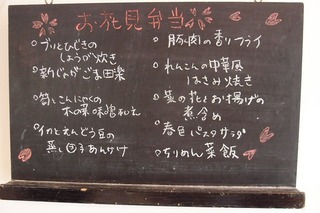 お花見弁当
ブリとひじきの
しょうが炊き
新じゃがごま田楽
筍とこんにゃくの
木の芽味噌和え
イカとえんどう豆の
蒸し玉子あんかけ
豚肉の香りフライ
れんこんの中華風
はさみ焼き
菜の花とお揚げの
煮含め
春色パスタサラダ
ちりめん菜飯